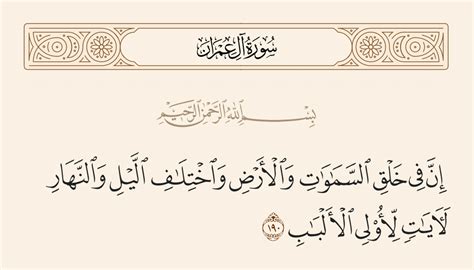 سُورَةُ آلِ عِمْرَان
بِسْمِ اللَّهِ الرَّحْمَٰنِ الرَّحِيمِ
إِنَّ فِي خَلْقِ السَّمَٰوَٰتِ وَالْأَرْضِ وَاخْتِلَٰفِ الَّيْلِ وَالنَّهَارِ
لَـَٔايَٰتٍ لِّأُو۟لِي الْأَلْبَٰبِ ١٩٠